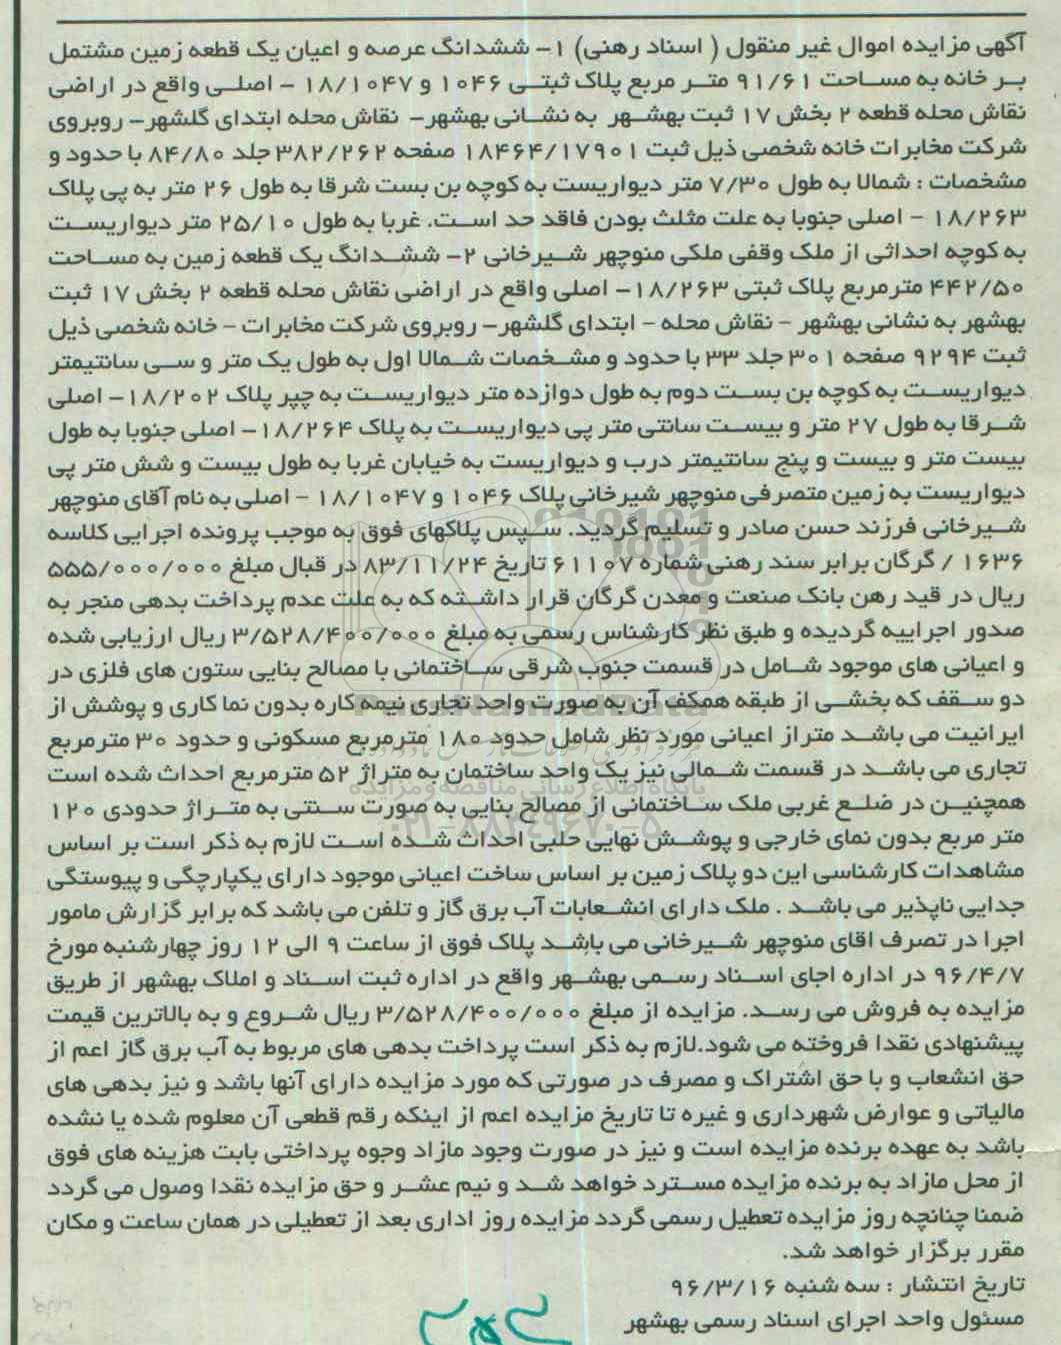 آگهی مزایده اموال غیر منقول ( اسناد رهنی) ۱- ششدانگ عرصه و اعیان یک قطعه زمین مشتمل
بر خانه به مساحت ۹۱/۶۱ متر مربع پلاک ثبتی ۱۰۴۶ و ۱۸/۱۰۴۷ - اصلی واقع در اراضی
نقاش محله قطعه ۲ بخش ۱۷ ثبت بهشهر به نشانی بهشهر- نقاش محله ابتدای گلشهر- روبروی
شرکت مخابرات خانه شخصی ذیل ثبت ۱۸۴۶۴/۱۷۹۰۱ صفحه ۳۸۲/۲۶۲ جلد ۸۴/۸۰ با حدود و
مشخصات : شمالا به طول ۷/۳۰ متر دیواریست به کوچه بن بست شرقا به طول ۲۶ متر به پی پلاک
۱۸/۲۶۳ - اصلی جنوبا به علت مثلث بودن فاقد حد است. غربا به طول ۲۵/۱۰ متر دیواریست
به کوچه احداثی از ملک وقفی ملکی منوچهر شیرخانی ۲- ششدانگ یک قطعه زمین به مساحت
۴۴۲/۵۰ مترمربع پلاک ثبتی ۱۸/۲۶۳- اصلی واقع در اراضی نقاش محله قطعه ۲ بخش ۱۷ ثبت
بهشهر به نشانی بهشهر - نقاش محله - ابتدای گلشهر- روبروی شرکت مخابرات - خانه شخصی ذیل
ثبت ۹۲۹۴ صفحه ۳۰۱ جلد ۳۳ با حدود و مشخصات شمالا اول به طول یک متر و سی سانتیمتر
دیواریست به کوچه بن بست دوم به طول دوازده متر دیواریست به چپر پلاک ۱۸/۲۰۲- اصلی
شرقا به طول ۲۷ متر و بیست سانتی متر پی دیواریست به پلاک ۱۸/۲۶۴- اصلی جنوبا به طول
بیست متر و بیست و پنج سانتیمتر درب و دیواریست به خیابان غربا به طول بیست و شش متر پی
دیواریست به زمین متصرفی منوچهر شیرخانی پلاک ۱۰۴۶ و ۱۸/۱۰۴۷ - اصلی به نام آقای منوچهر
شیرخانی فرزند حسن صادر و تسلیم گردید. سپس پلاکهای فوق به موجب پرونده اجرایی کلاسه
۱۶۳۶ / گرگان برابر سند رهنی شماره ۶۱۱۰۷ تاریخ ۸۳/۱۱/۲۴ در قبال مبلغ ۵۵۵/۰۰۰/۰۰۰
ریال در قید رهن بانک صنعت و معدن گرگان قرار داشته که به علت عدم پرداخت بدهی منجر به
صدور اجراییه گردیده و طبق نظر کارشناس رسمی به مبلغ ۳/۵۲۸/۴۰۰/۰۰۰ ریال ارزیابی شده
و اعیانی های موجود شامل در قسمت جنوب شرقی ساختمانی با مصالح بنایی ستون های فلزی در
دو سقف که بخشی از طبقه همکف آن به صورت واحد تجاری نیمه کاره بدون نما کاری و پوشش از
ایرانیت می باشد متراز اعیانی مورد نظر شامل حدود ۱۸۰ مترمربع مسکونی و حدود ۳۰ مترمربع
تجاری می باشد در قسمت شمالی نیز یک واحد ساختمان به متراژ ۵۲ مترمربع احداث شده است
همچنین در ضلع غربی ملک ساختمانی از مصالح بنایی به صورت سنتی به متراژ حدودی ۱۲۰
متر مربع بدون نمای خارجی و پوشش نهایی حلبی احداث شده است لازم به ذکر است بر اساس
مشاهدات کارشناسی این دو پلاک زمین بر اساس ساخت اعیانی موجود دارای یکپارچگی و پیوستگی
جدایی ناپذیر می باشد . ملک دارای انشعابات آب برق گاز و تلفن می باشد که برابر گزارش مامور
اجرا در تصرف اقای منوچهر شیرخانی می باشد پلاک فوق از ساعت ۹ الی ۱۲ روز چهارشنبه مورخ
۹۶/۴/۷ در اداره اجای اسناد رسمی بهشهر واقع در اداره ثبت اسناد و املاک بهشهر از طریق
مزایده به فروش می رسد. مزایده از مبلغ ۳/۵۲۸/۴۰۰/۰۰۰ ریال شروع و به بالاترین قیمت
پیشنهادی نقدا فروخته می شود.لازم به ذکر است پرداخت بدهی های مربوط به آب برق گاز اعم از
حق انشعاب و با حق اشتراک و مصرف در صورتی که مورد مزایده دارای آنها باشد و نیز بدهی های
مالیاتی و عوارض شهرداری و غیره تا تاریخ مزایده اعم از اینکه رقم قطعی آن معلوم شده یا نشده
باشد به عهده برنده مزایده است و نیز در صورت وجود مازاد وجوه پرداختی بابت هزینه های فوق
از محل مازاد به برنده مزایده مسترد خواهد شد و نیم عشر و حق مزایده نقدا وصول می گردد
ضمنا چنانچه روز مزایده تعطیل رسمی گردد مزایده روز اداری بعد از تعطیلی در همان ساعت و مکان
مقرر برگزار خواهد شد.
تاریخ انتشار : سه شنبه ۹۶/۳/۱۶
مسئول واحد اجرای اسناد رسمی بهشهر